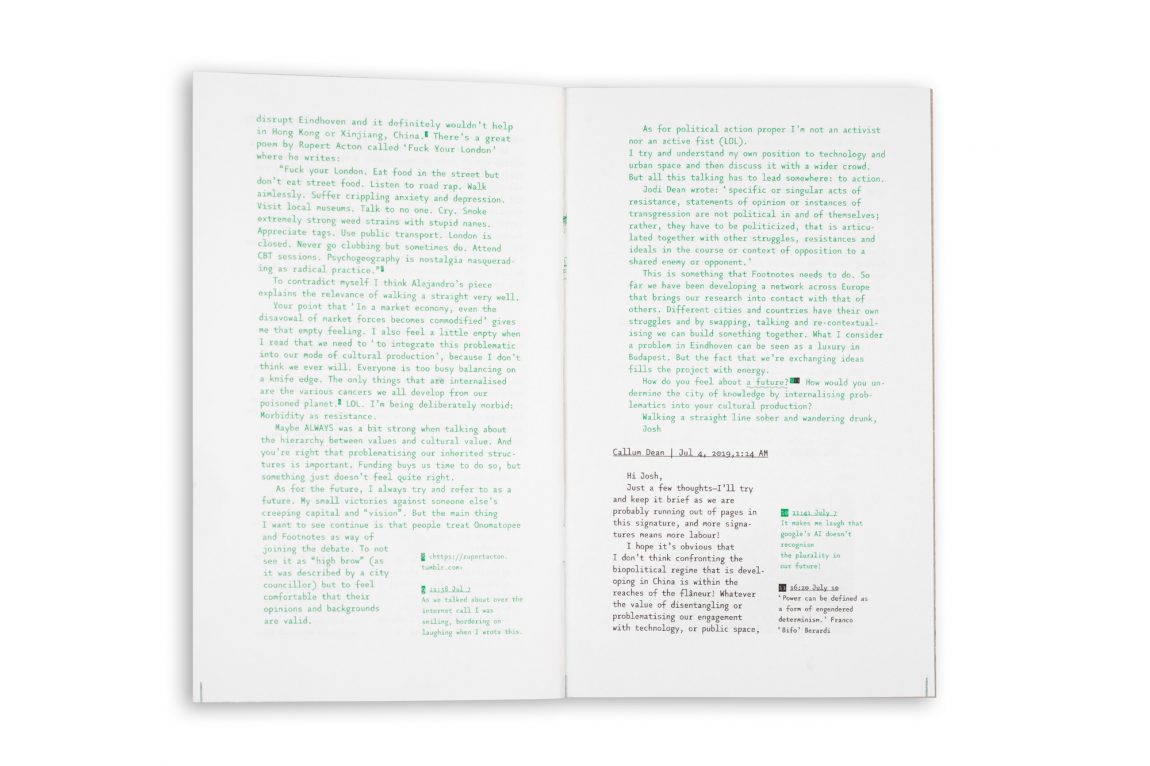 disrupt Eindhoven and it definitely wouldn't help
in Hong Kong or Xinjiang, China. There's a great
poem by Rupert Acton called 'Fuck Your London'
where he writes:
"Fuck your London. Eat food in the street but
don't eat street food. Listen to road rap. Walk
aimlessly. Suffer crippling anxiety and depression.
Visit local museums. Talk to no one. Cry. Smoke
extremely strong weed strains with stupid names.
Appreciate tags. Use public transport. London is
closed. Never go clubbing but sometimes do. Attend
CBT sessions. Psychogeography is nostalgia masquerad-
ing as radical practice."
To contradict myself I think Alejandro's piece
explains the relevance of walking a straight very well.
Your point that 'In a market economy, even the
disavowal of market forces becomes commodified' gives
me that empty feeling. I also feel a little empty when
I read that we need to 'to integrate this problematic
into our mode of cultural production', because I don't
think we ever will. Everyone is too busy balancing on
a knife edge. The only things that are internalised
are the various cancers we all develop from our
poisoned planet. LOL. I'm being deliberately morbid:
Morbidity as resistance.
Maybe ALWAYS was a bit strong when talking about
the hierarchy between values and cultural value. And
you're right that problematising our inherited struc-
tures is important. Funding buys us time to do so, but
something just doesn't feel quite right.
As for the future, I always try and refer to as a
future. My small victories against someone else's
creeping capital and "vision". But the main thing
I want to see continue is that people treat Onomatopee
and Footnotes as way of
joining the debate. To not
see it as "high brow" (as
it was described by a city
councillor) but to feel
comfortable that their
opinions and backgrounds
are valid.
<https://rupertacton.
tumblr.com>
9 11:38 Jul 7
As we talked about over the
internet call I was
smiling, bordering on
laughing when I wrote this.
As for political action proper I'm not an activist
nor an active fist (LOL).
I try and understand my own position to technology and
urban space and then discuss it with a wider crowd.
But all this talking has to lead somewhere: to action.
Jodi Dean wrote: 'specific or singular acts of
resistance, statements of opinion or instances of
transgression are not political in and of themselves;
rather, they have to be politicized, that is articu-
lated together with other struggles, resistances and
ideals in the course or context of opposition to a
shared enemy or opponent.'
This is something that Footnotes needs to do. So
far we have been developing a network across Europe
that brings our research into contact with that of
others. Different cities and countries have their own
struggles and by swapping, talking and re-contextual-
ising we can build something together. What I consider
a problem in Eindhoven can be seen as a luxury in
Budapest. But the fact that we're exchanging ideas
fills the project with energy.
How do you feel about a future? How would you un-
dermine the city of knowledge by internalising prob-
lematics into your cultural production?
Walking a straight line sober and wandering drunk,
Josh
Callum Dean | Jul 4, 2019,1:14 AM
Hi Josh,
Just a few thoughts—I'll try
and keep it brief as we are
probably running out of pages in
this signature, and more signa-
tures means more labour!
I hope it's obvious that
I don't think confronting the
biopolitical regime that is devel-
oping in China is within the
reaches of the flâneur! Whatever
the value of disentangling or
problematising our engagement
with technology, or public space,
10 11:41 July 7
It makes me laugh that
google's AI doesn't
recognise
the plurality in
our future!
11 16:20 July 10
'Power can be defined as
a form of engendered
determinism.' Franco
'Bifo' Berardi